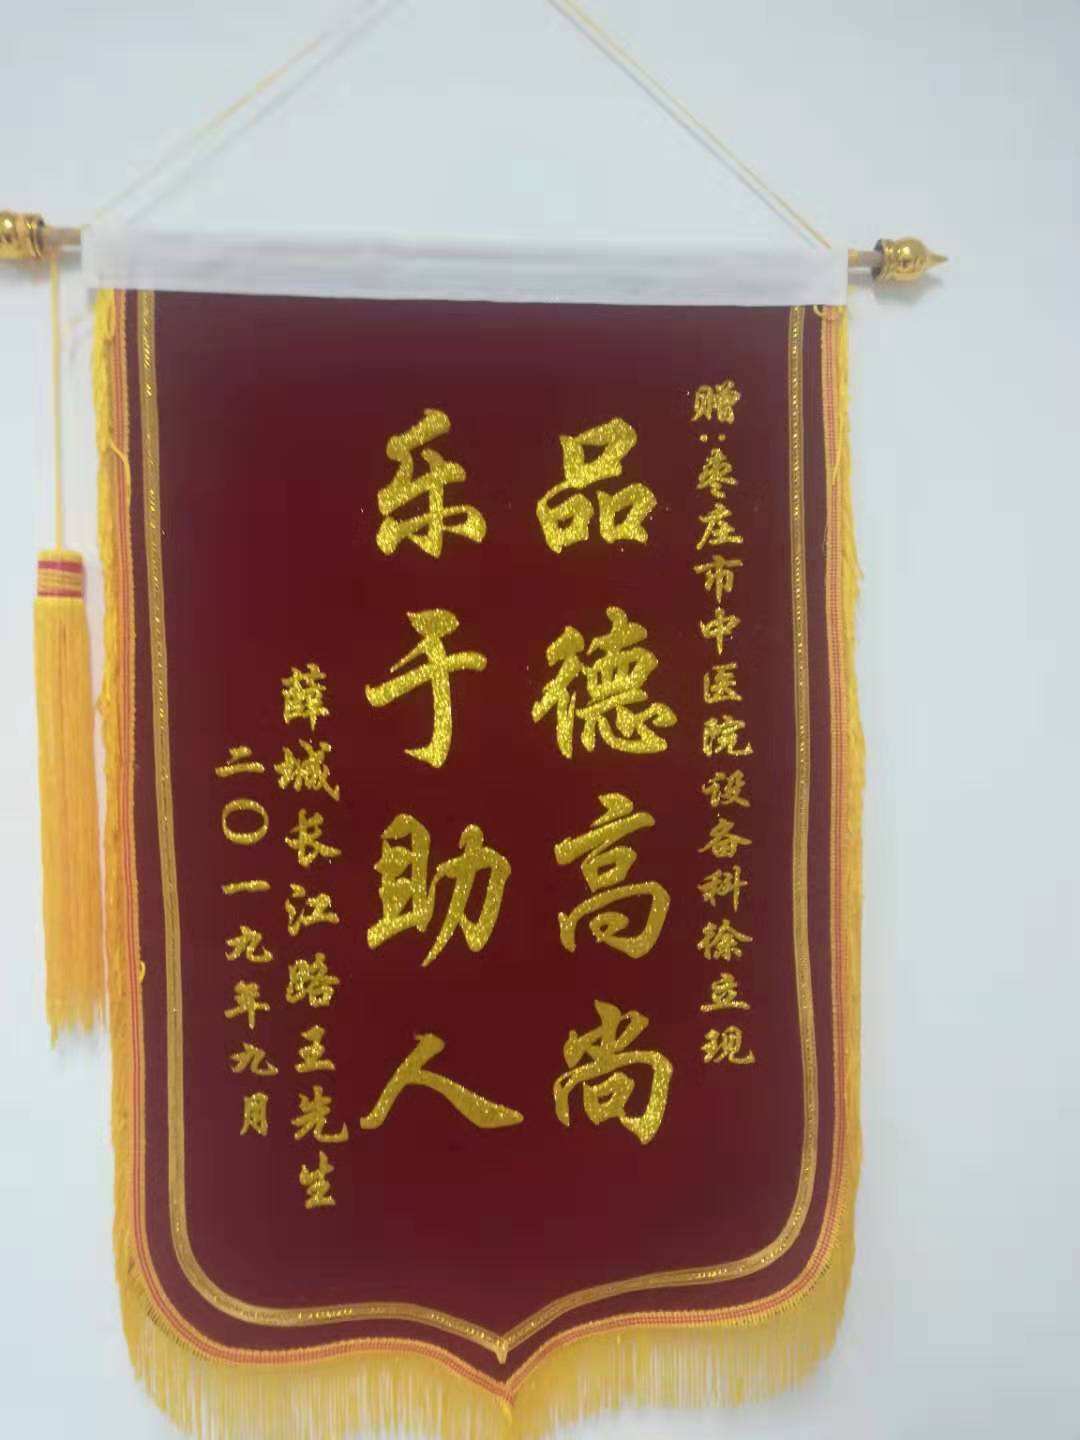 赠：枣庄市中医院设备科徐立现
品德高尚
乐于助人
薛城长江路王先生
二〇一九年九月